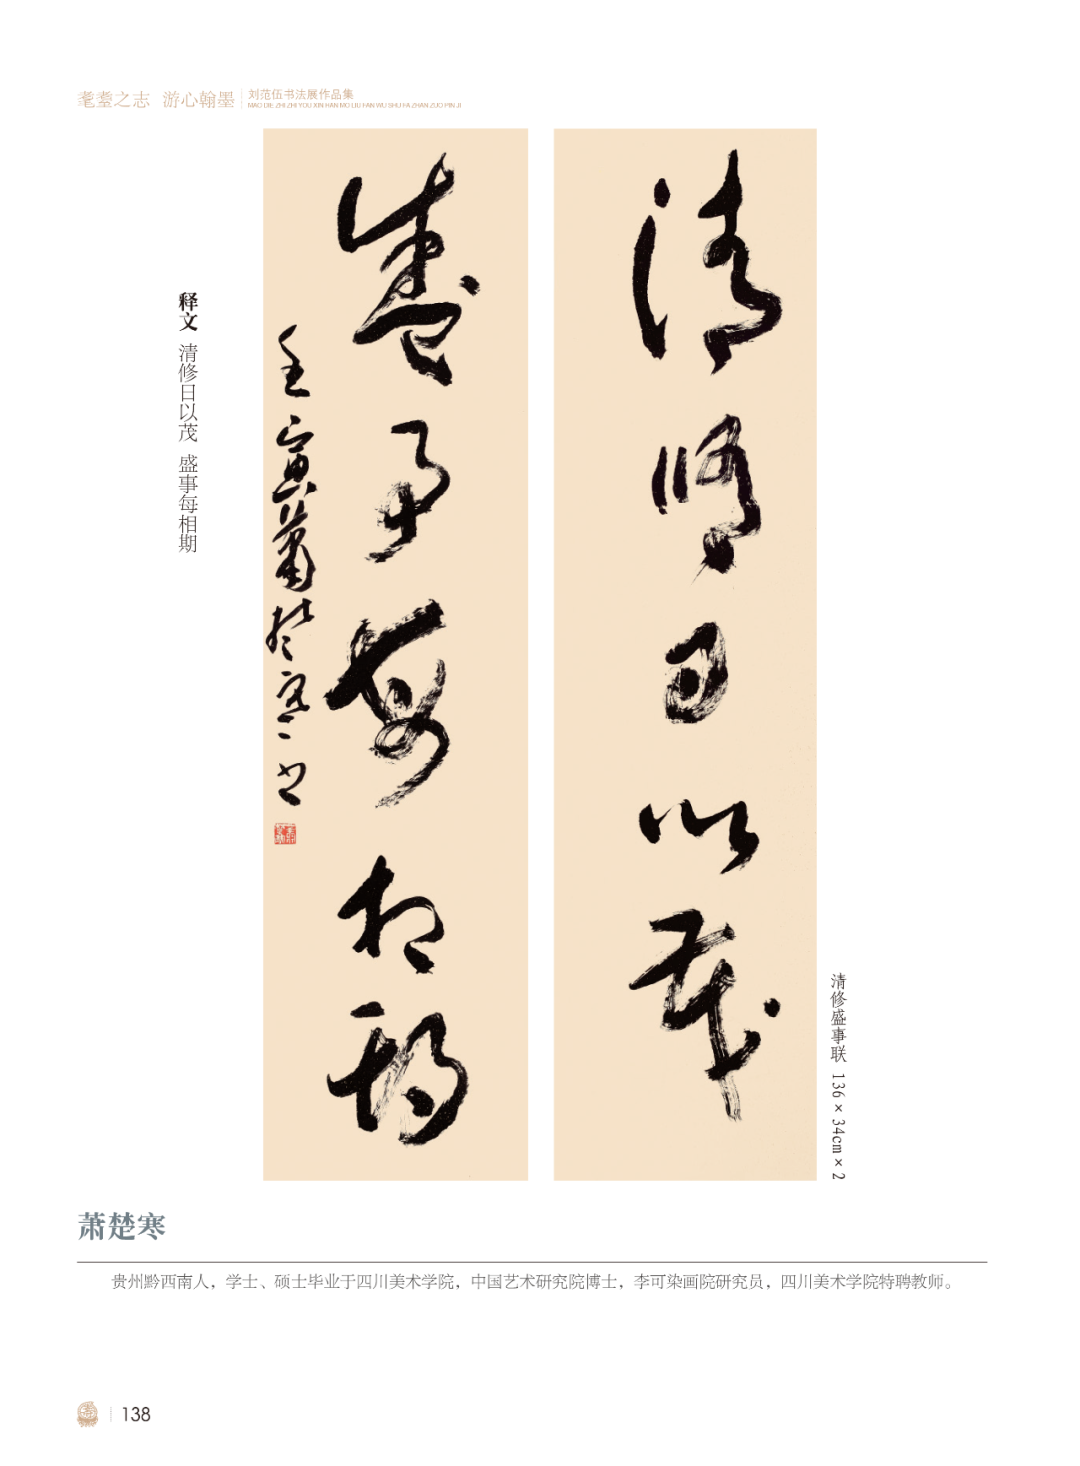 耄耋之志 游心翰墨
刘范伍书法展作品集
MAO DIE ZHI ZHI YOU XIN HAN MO LIU FAN WU SHU FA ZHAN ZUO PIN JI
清修日以茂
盛事每相期
壬寅萧楚寒书
释文 清修日以茂 盛事每相期
清修盛事联 136×34cm×2
萧楚寒
贵州黔西南人，学士、硕士毕业于四川美术学院，中国艺术研究院博士，李可染画院研究员，四川美术学院特聘教师。
138